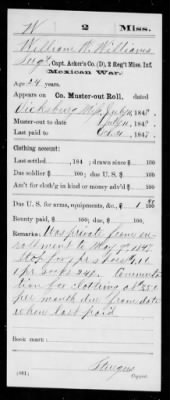 W 2 Miss.
William W. Williams
Capt. Acker's Co. (D), 2 Reg't Miss. Inf.
Mexican War.
Age 24 years.
Appears on Co. Muster-out Roll, dated
Vicksburg Miss, July, 1848.
Muster-out to date July, 1848.
Last paid to 1847.
Clothing account:
Last settled, 184 ; drawn since $ 100
Due soldier $ 100; due U. S. $ 100
Am't for cloth'g in kind or money adv'd $ 100
Due U. S. for arms, equipments, &c., $ 1 100
Bounty paid $ 100; due $ 100
Remarks: Was private from en-
rollment to May
Stop for 1 pr
1 pr 240. Commuta-
tion for clothing at 3.50
per month due from date
when last paid
Book mark:
(861) Copyist.